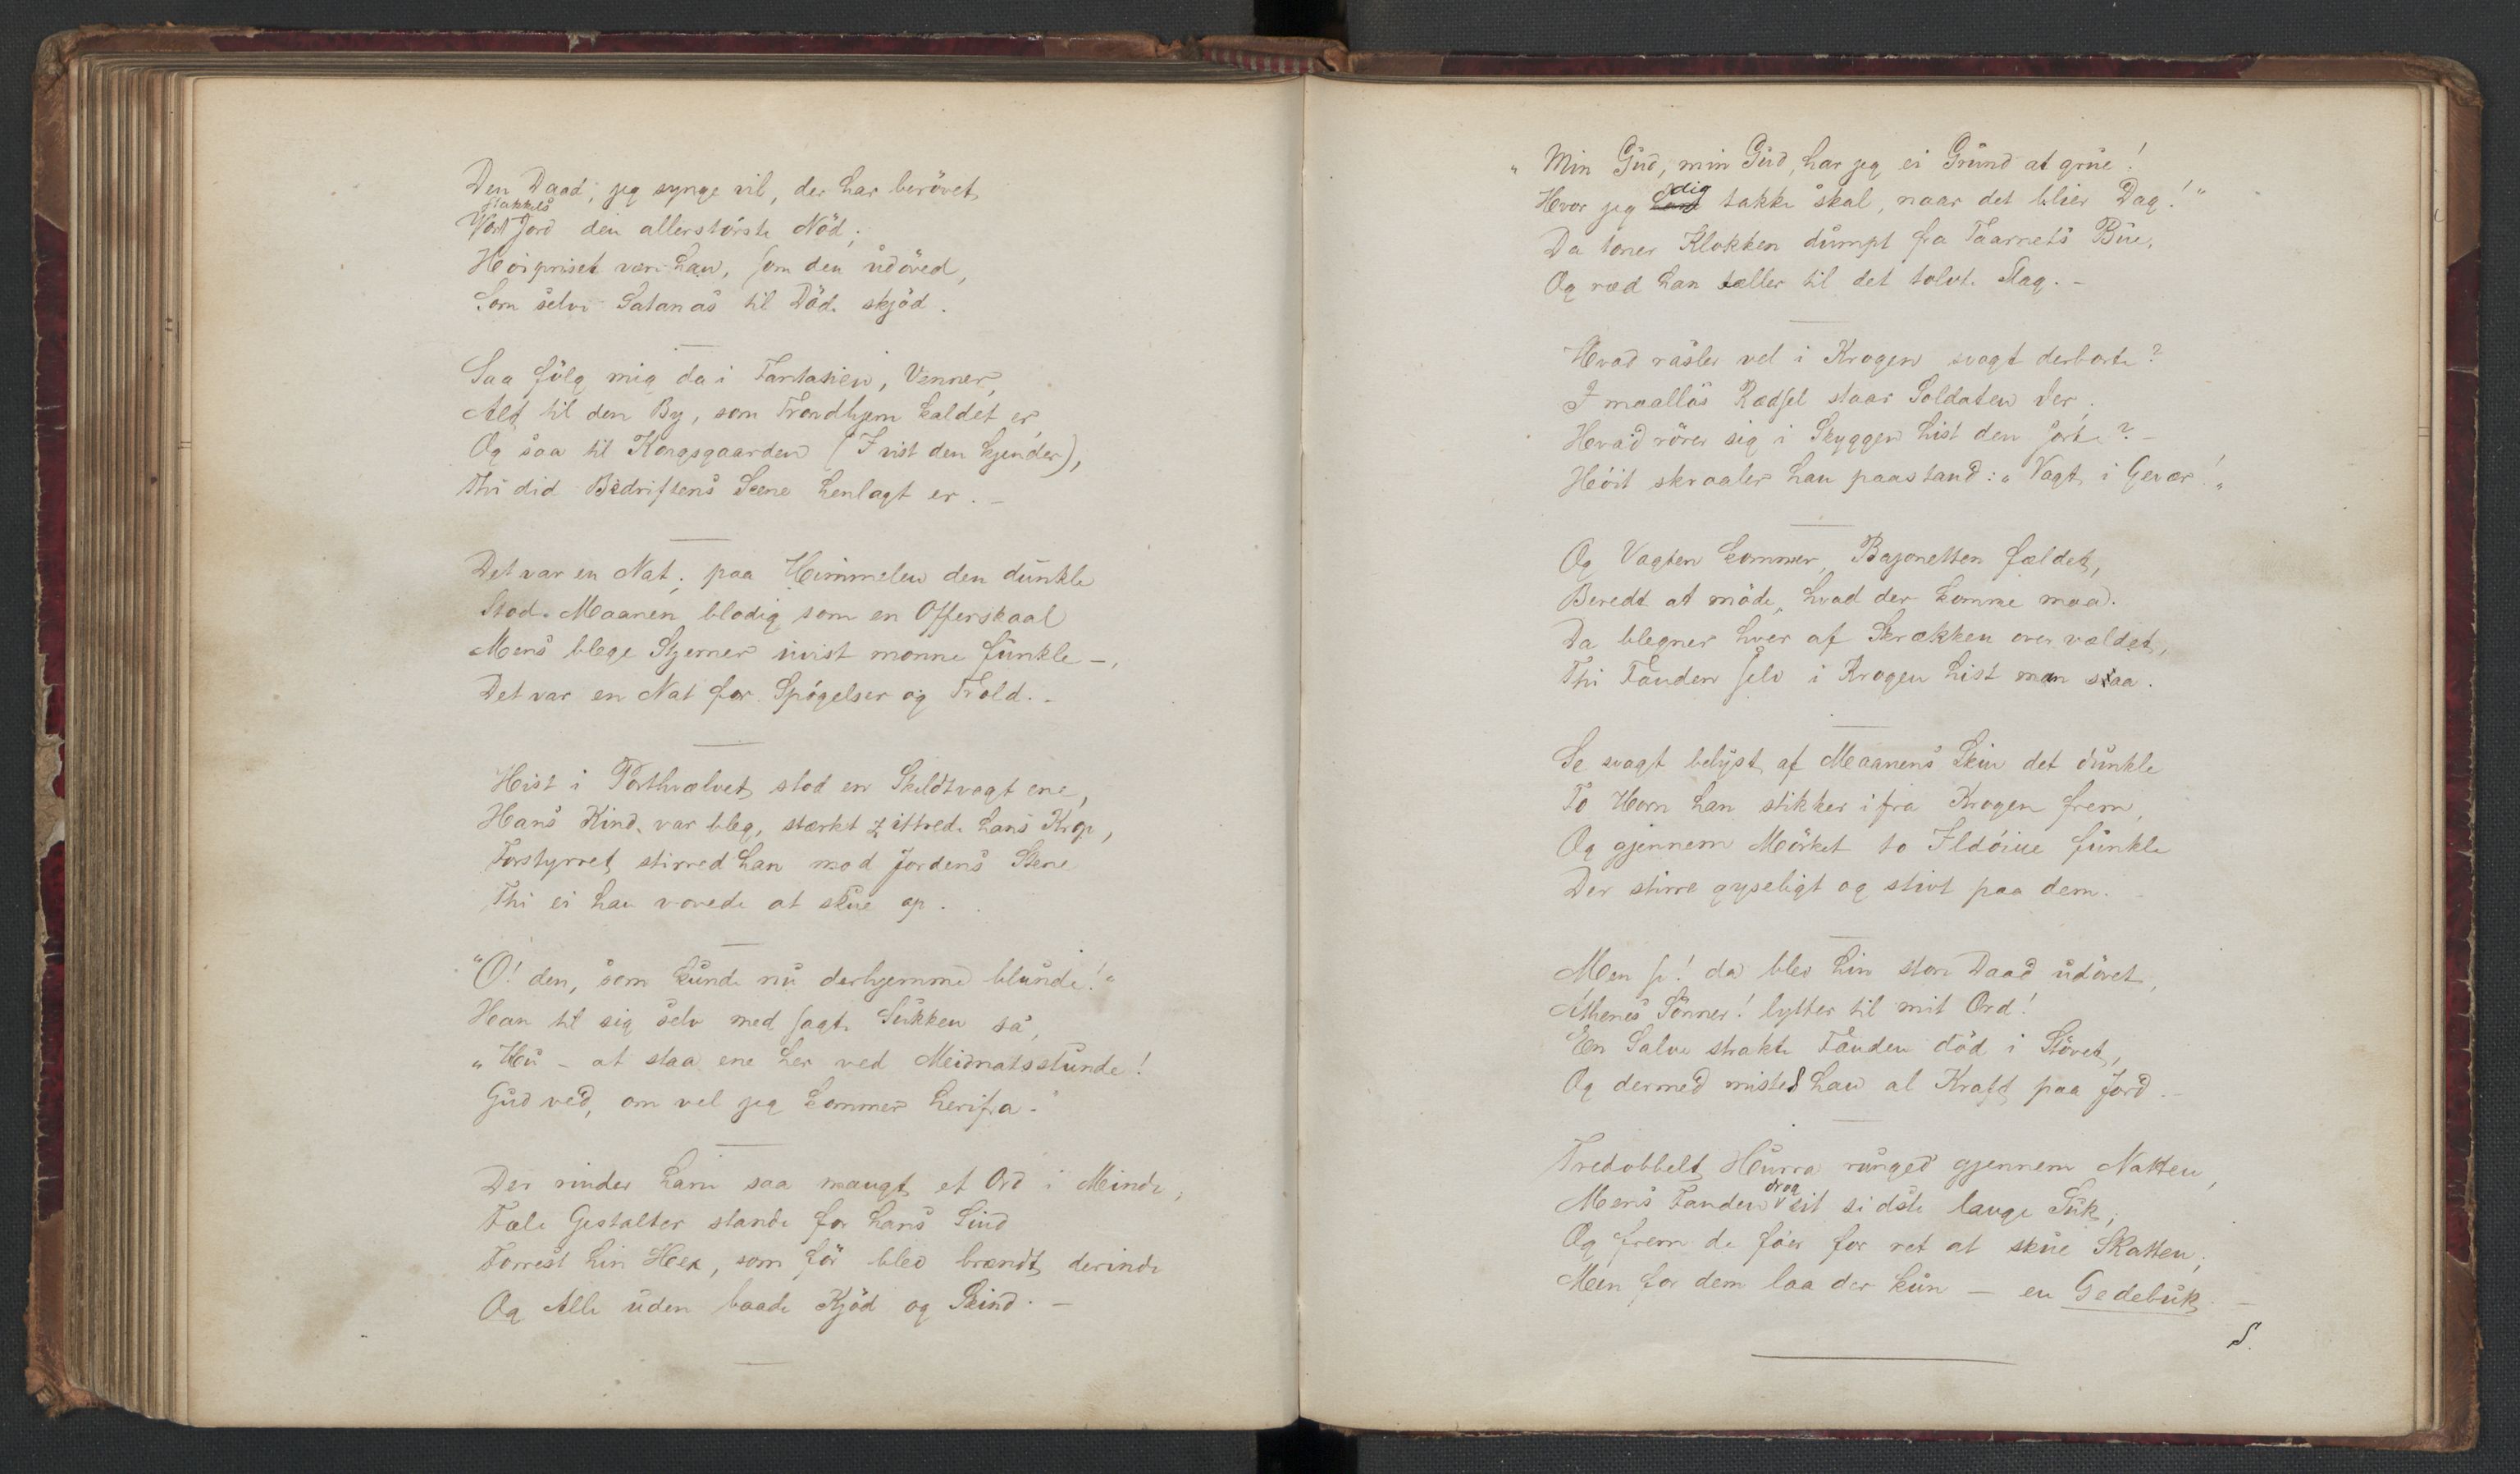 Den Daad, jeg synge vil, der har berövet
stakkels
Vort Jord den allerstörste Nöd;
Höipriset være han, som den udöved,
Som selve Satanas til Döde skjöd.
Saa fölg mig da i Fantasien, Venner,
Alt til den By, som Trondhjem kaldet er,
Og saa til Kongsgaarden (I vist den kjender),
Thi did Bedriftens Scene henlagt er. –
Det var en Nat; paa Himmelen den dunkle
Stod Maanen blodig som en Offerskaal
Mens blege Stjerner uvist monne funkle –,
Det var en Nat for Spögelser og Trold. –
Hist i Porthvælvet stod en Skildtvagt ene,
Hans Kind var bleg, stærkt zittrede hans Krop,
Forstyrret stirred han mod Jordens Stene
Thi ei han vovede at skue op.
"O! den, som kunde nu derhjemme blunde!"
Han til sig selv med sagte Sukken sa,
"Hu – at staa ene her ved Meidnatsstunde!
Gud ved, om vel jeg kommer herifra."
Der rinder ham saa mangt et Ord i Minde,
Fæle Gestalter stande for hans Sind
Forrest hin Hex, som för blev brændt derinde
Og Alle uden baade Kjöd og Skind. –
"Min Gud, min Gud, har jeg ei Grund at grue!
dig
Hvor jeg takke skal, naar det blier Dag!"
Da toner Klokken dumpt fra Taarnets Bue,
Og ræd han tæller til det tolvte Slag. –
Hvad rasler vel i Krogen svagt derborte?
I maallös Rædsel staar Soldaten der,
Hvad rörer sig i Skyggen hist den sorte? –
Höit skraaler han paastand: "Vagt i Gevær!"
Og Vagten kommer, Bajonetten fældet,
Beredt at möde, hvad der komme maa.
Da blegner hver af Skrækken overvældet,
Thi Fanden selv i Krogen hist man saa.
Se svagt belyst af Maanens Skin det dunkle
To Horn han stikker ifra Krogen frem,
Og gjennem Mörket to Ildöine funkle
Der stirre gyseligt og stivt paa dem.
Men se! da blev hin store Daad udövet,
Athenes Sönner! lytter til mit Ord!
En Salve strakte Fanden död i Stövet,
Og dermed misted han al Kraft paa Jord. –
Tredobbelt Hurra runged gjennem Natten,
drog
Mens Fanden sit sidste lange Suk;
Og frem de föer for ret at skue Skatten;
Men for dem laa der kun – en Gedebuk. –
S.